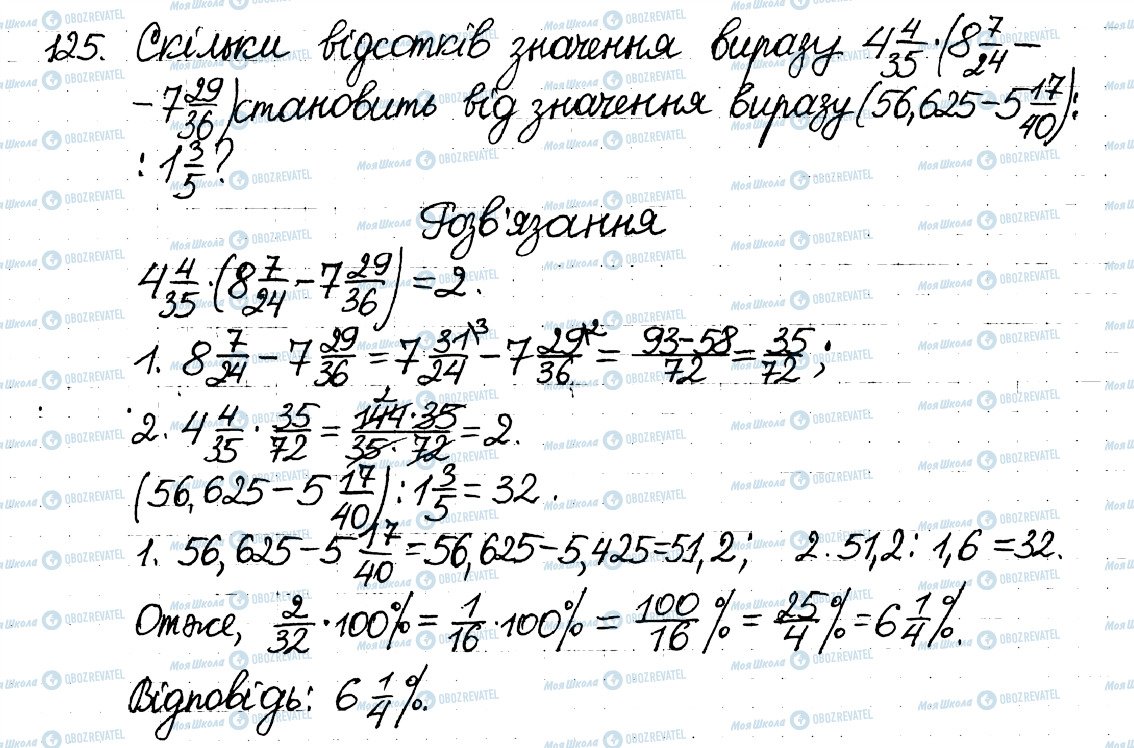 125. Скільки відсотків значення виразу 4 4/35 · (8 7/24 −
− 7 29/36) становить від значення виразу (56,625 − 5 17/40) :
: 1 3/5?
Розв'язання
4 4/35 · (8 7/24 − 7 29/36) = 2.
1. 8 7/24 − 7 29/36 = 7 31/24 \3 − 7 29/36 \2 = 93−58/72 = 35/72;
2. 4 4/35 · 35/72 = 144·35/35·72 = 2.
(56,625 − 5 17/40) : 1 3/5 = 32.
1. 56,625 − 5 17/40 = 56,625 − 5,425 = 51,2; 2. 51,2 : 1,6 = 32.
Отже, 2/32 · 100% = 1/16 · 100% = 100/16 % = 25/4 % = 6 1/4 %.
Відповідь: 6 1/4 %.